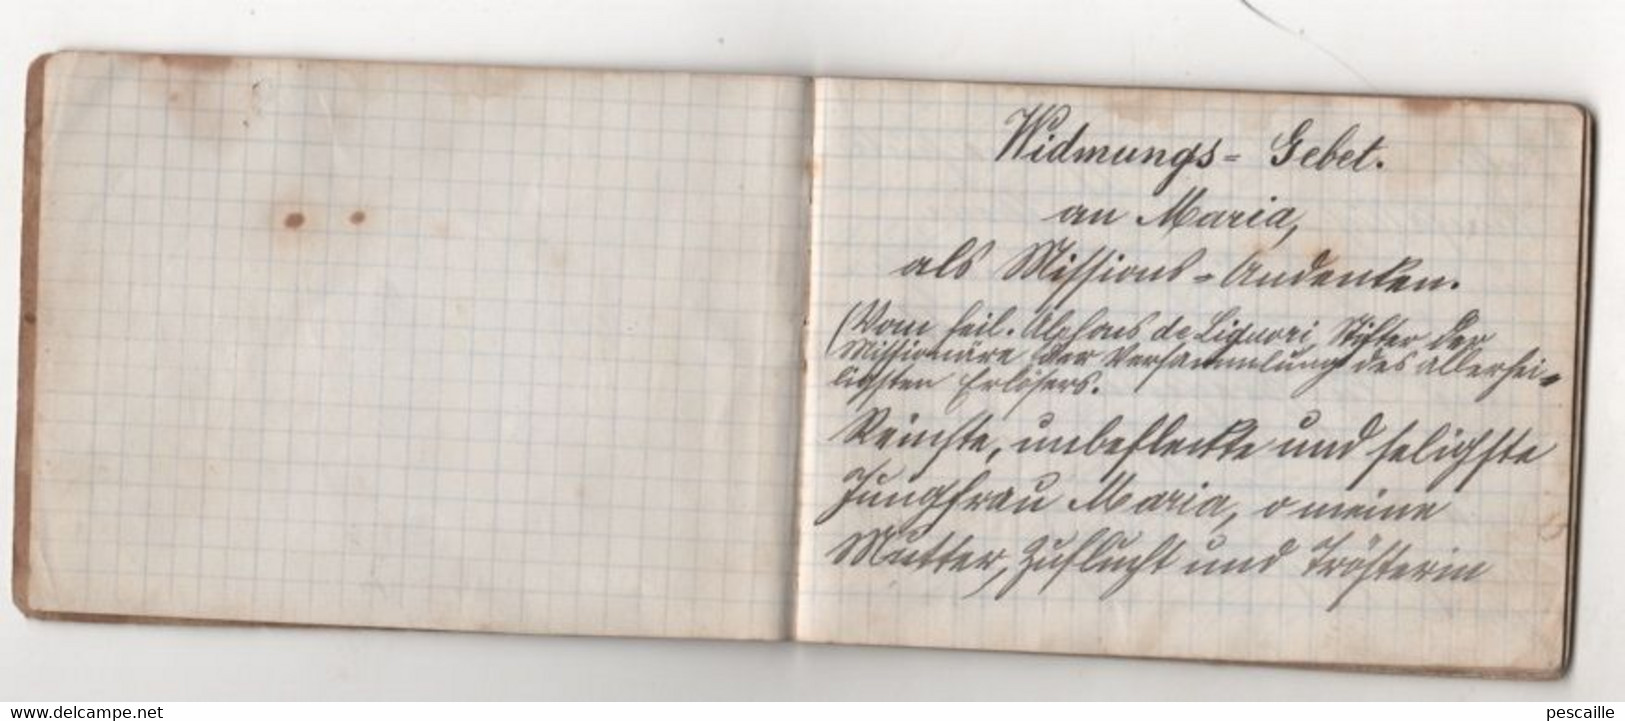 Widmungs= Gebet.
an Maria,
als Missions=Andenken.
(Vom heil. Alphons de Liguori, Stifter der
Missionäre der Versammlung des allerhei=
ligsten Erlösers.
Reinste, unbefleckte und seligste
Jungfrau Maria, o meine
Mutter, Zuflucht und Trösterin
www.delcampe.net
pescaille